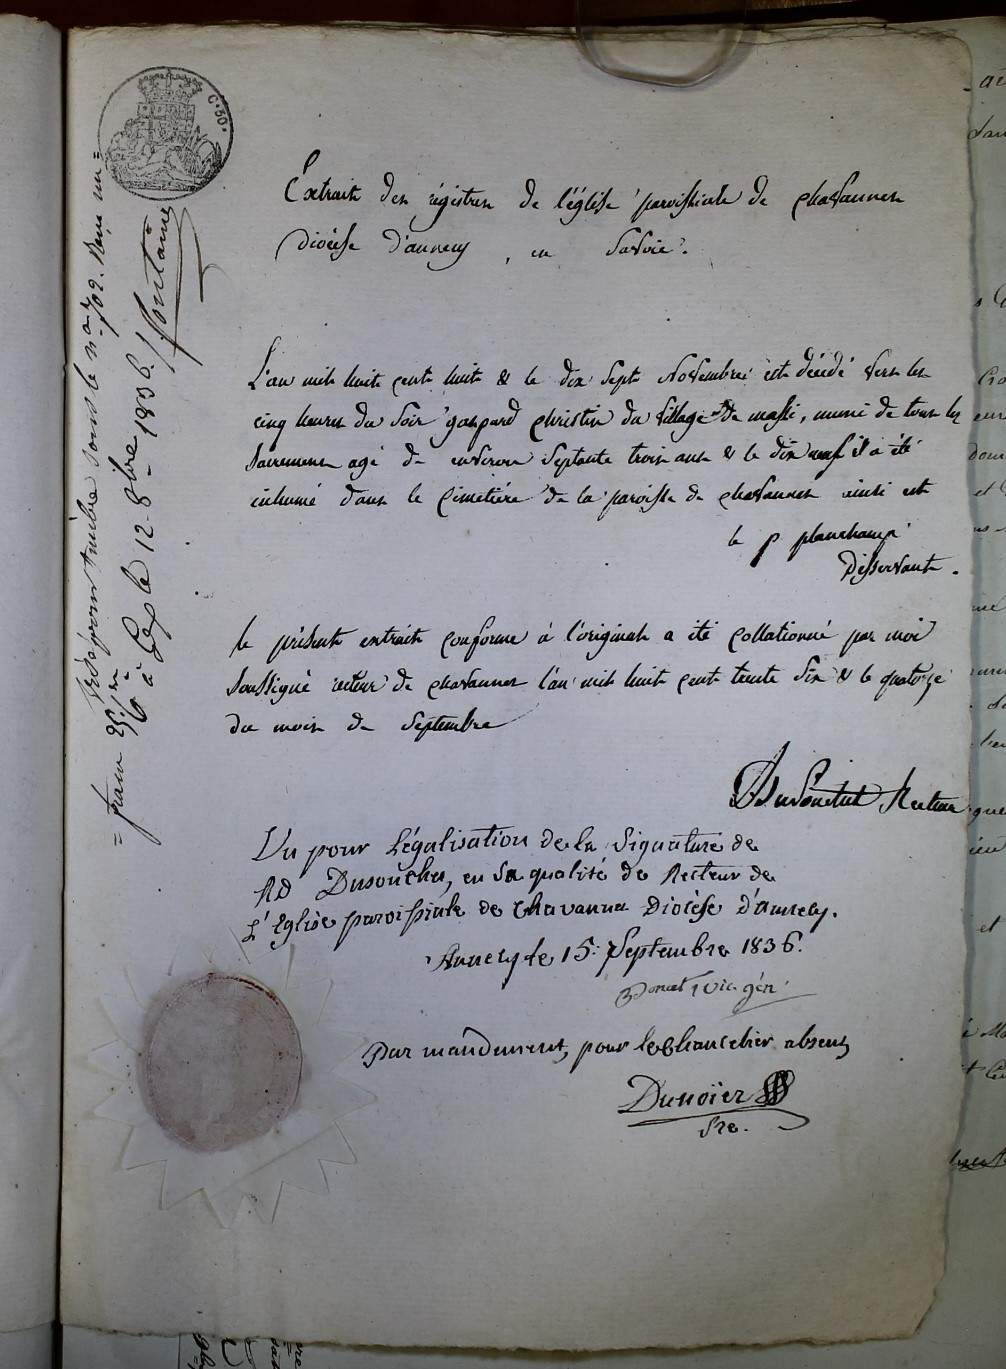 C. 30.
Extrait des régistres de l'églisé paroissiale de chavannes
Diocèse d'annecy, en Savoie.
L'an mil huit cent huit & le dix sept Novembre est décédé vers les
cinq heures du Soir gaspard christin du village de massi, muni de tous les
sacremens agé de environ Septante trois ans & le dix neuf il a été
inhumé dans le Cimetiére de la paroisse de chavannes ainsi est
le p planchamp
Désservant.
le présent extrait conforme à l'original a été collationné par moi
soussigné recteur de chavannes l'an mil huit cent trente six & le quatorze
du mois de Septembre
Recteur
Vu pour Légalisation de la Signature de
Rd Dusouchet, en Sa qualité de Recteur de
L'Eglise paroissiale de Chavanna Diocèse d'Annecy.
Annecy le 15. Septembre 1836.
Vic. gén.
Par mandement, pour le Chancelier absent
Dunoïer
Sre.
Visé pour timbre sous le no 702. Reçu un
franc 25 cmes à Gex le 12 8bre 1836.
fontaine